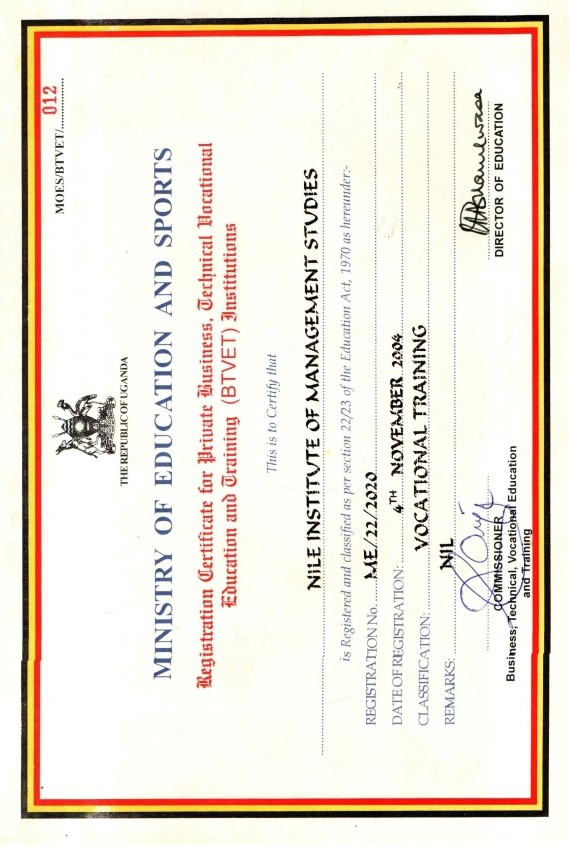 MOES/BTVET/............012
THE REPUBLIC OF UGANDA
MINISTRY OF EDUCATION AND SPORTS
Registration Certificate for Private Business, Technical Vocational
Education and Training (BTVET) Institutions
This is to Certify that
NILE INSTITUTE OF MANAGEMENT STUDIES
is Registered and classified as per section 22/23 of the Education Act, 1970 as hereunder:-
REGISTRATION No. ME/22/2020
DATE OF REGISTRATION: 4TH NOVEMBER 2004
CLASSIFICATION: VOCATIONAL TRAINING
REMARKS: NIL
COMMISSIONER
Business, Technical, Vocational Education
and Training
DIRECTOR OF EDUCATION